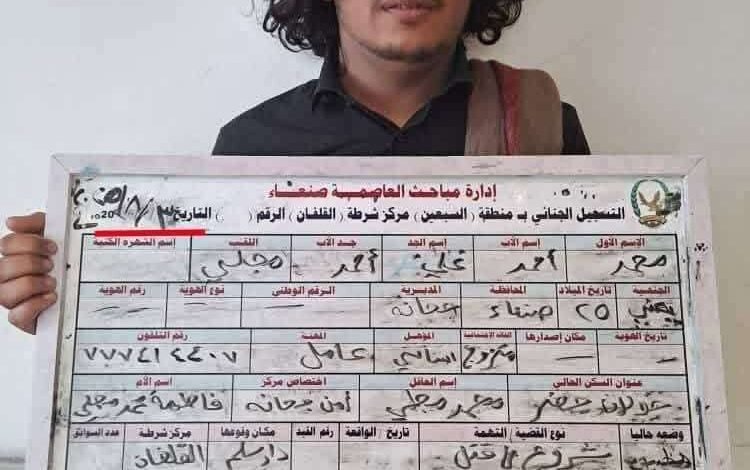 إدارة مباحث العاصمة صنعاء
التسجيل الجنائي بـ منطقة (السبعين) مركز شرطة (القلفان) الرقم ( ) التاريخ ٣/٨/
الإسم الأول إسم الأب إسم الجد جد الأب اللقب إسم الشهره الكنية
محمد أحمد علي أحمد مجلي
الجنسية تاريخ الميلاد المحافظة المديرية الرقم الوطني نوع الهوية رقم الهوية
يمني ٢٥ صنعاء جحانة
تاريخ الهوية مكان إصدارها المؤهل المهنة رقم التلفون
متزوج اساسي عامل ٧٧٧٤١٤٤٠٧
عنوان السكن الحالي إسم العائل اختصاص مركز إسم الأم
محمد مجلي أمن جحانه فاطمة محمد مجلي
وضعه حاليا نوع القضية / التهمة تاريخ / الواقعة رقم القيد مكان وقوعها مركز شرطة عدد السوابق
شروع قتل دار سلم القلفان